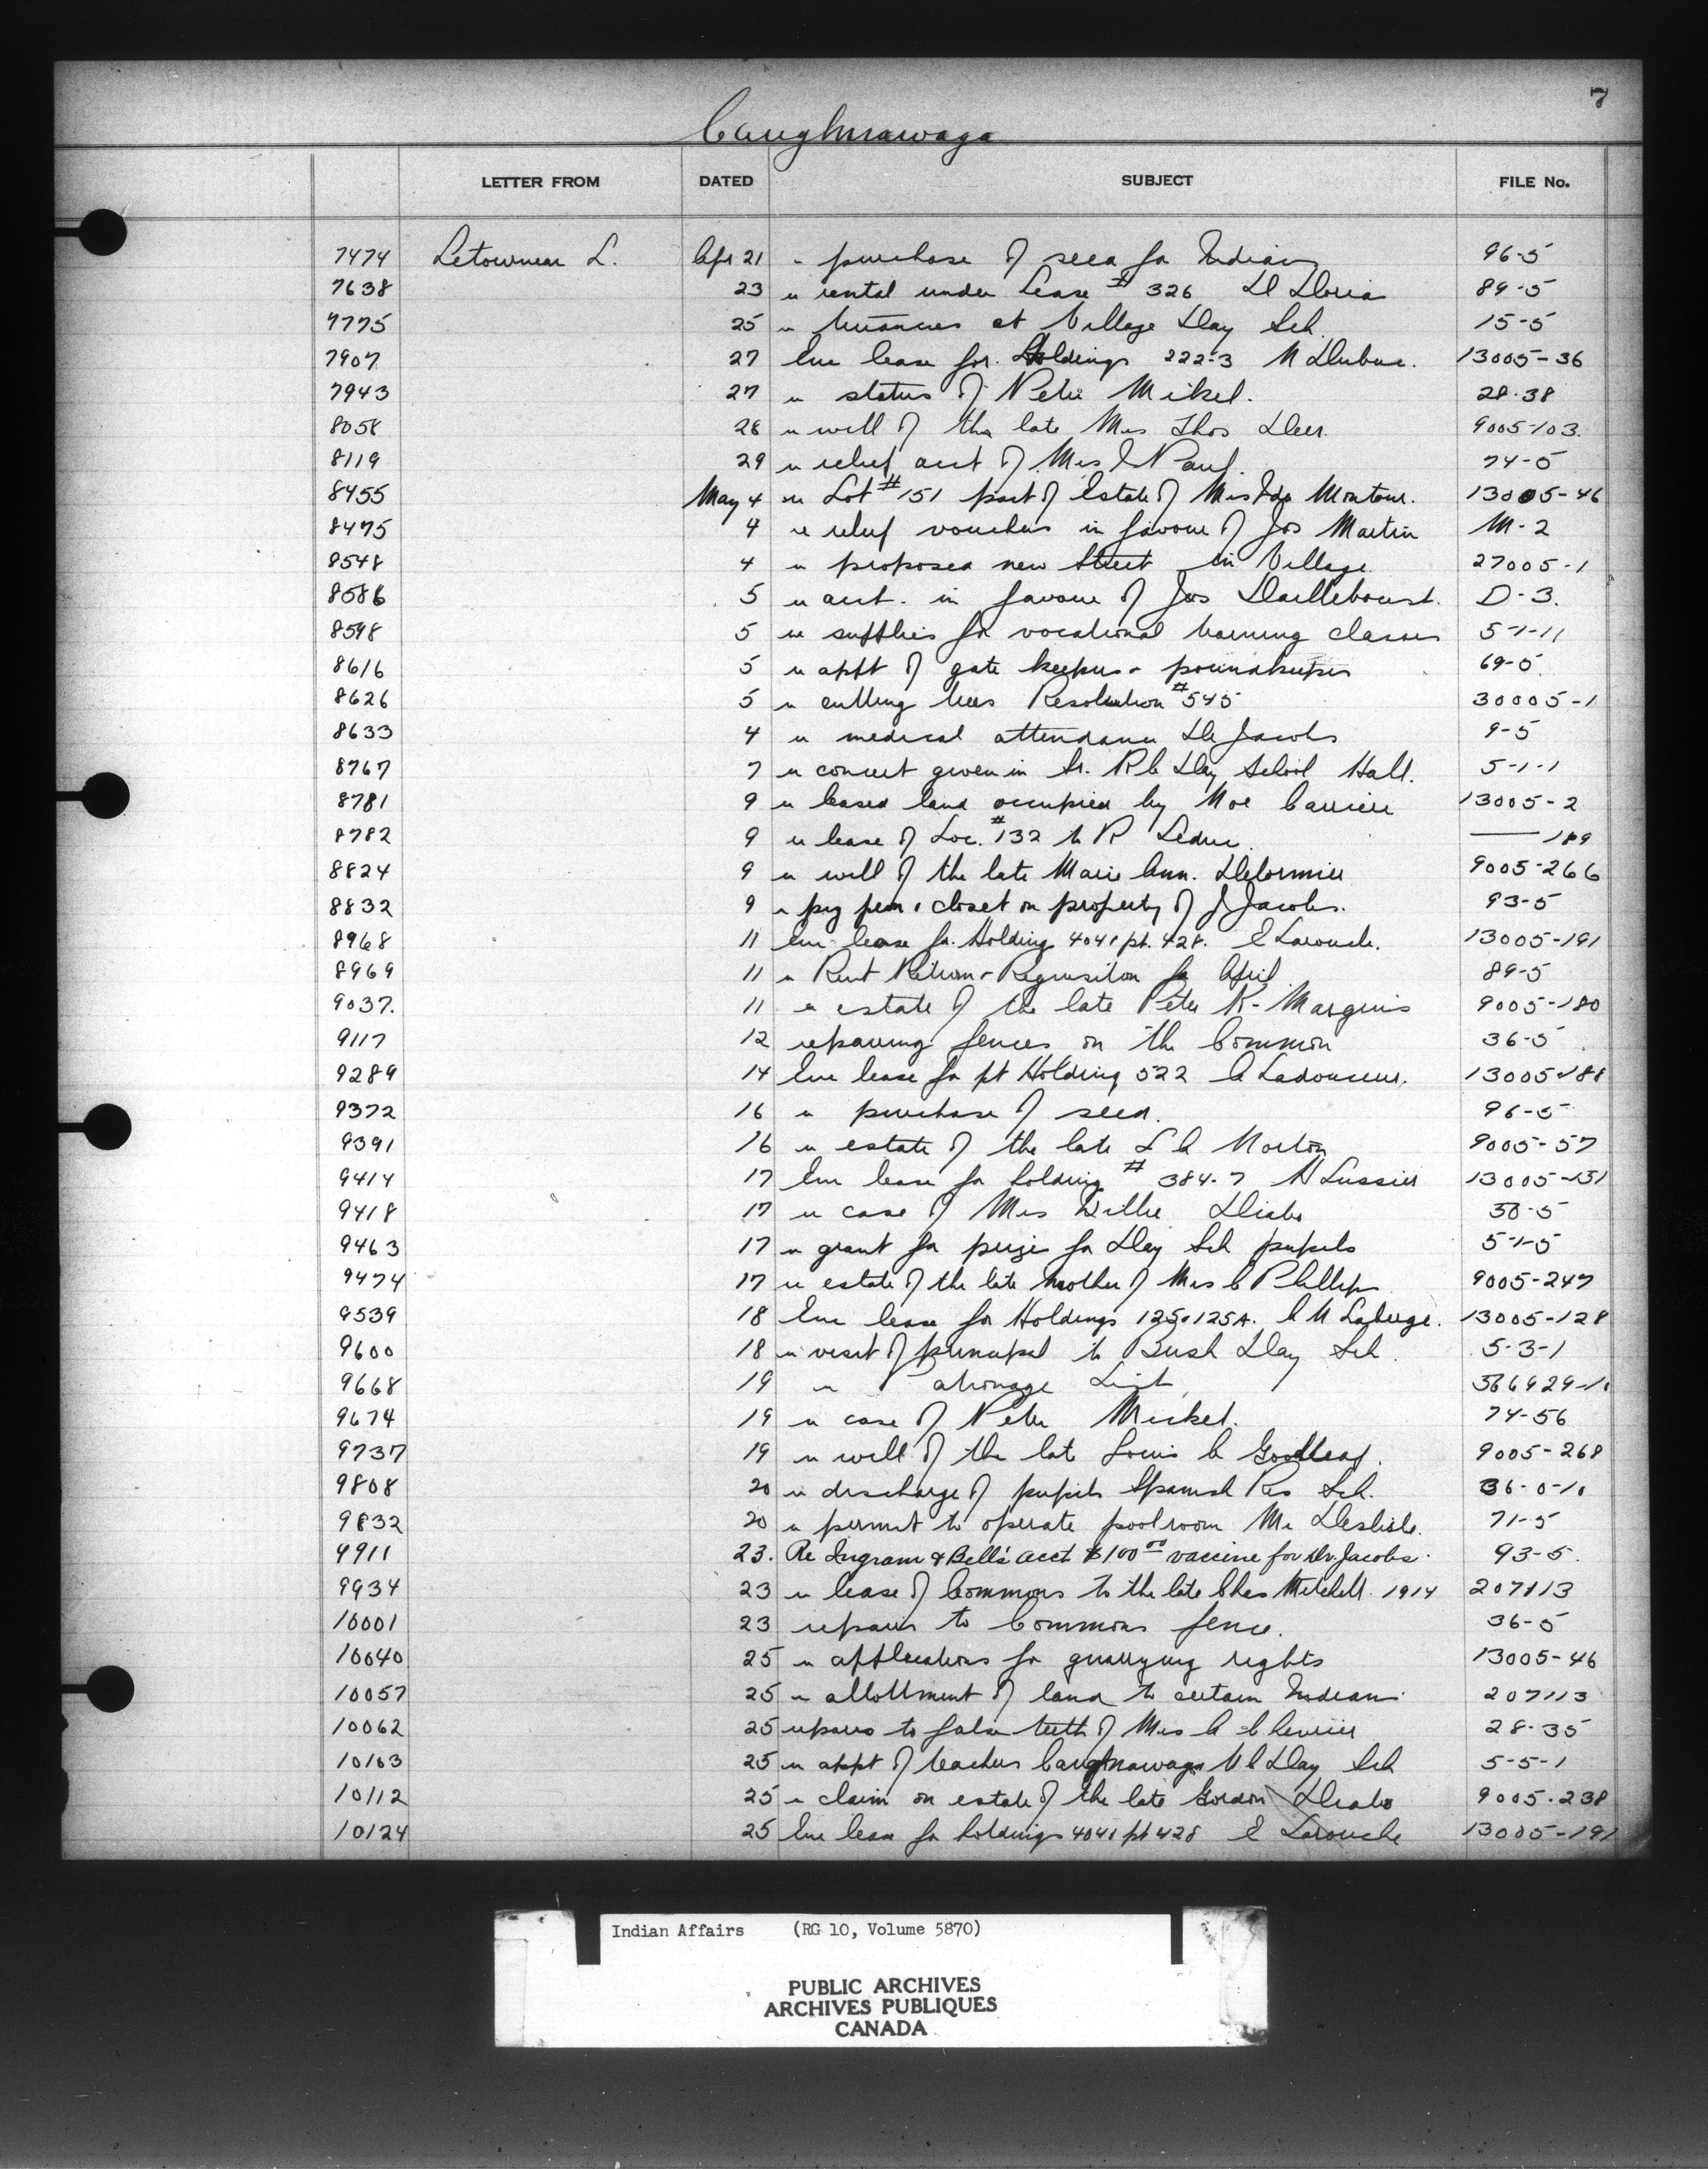 7
Caughnawaga
LETTER FROM DATED SUBJECT FILE No.
7474 Letourneau L. Apr 21 re purchase of seed for Indians 96-5
7638 23 re rental under Lease # 326 D Doria 89-5
7775 25 re at Village Day Sch. 15-5
7907 27 Enc lease for Holdings 222-3 M Dubuc. 13005-36
7943 27 re status of Peter Mikel. 28-38
8058 28 re will of the late Mrs Thos Deer. 9005-103.
8119 29 re relief acct of Mrs Paul. 74-5
8455 May 4 re Lot #151 part of Estate of Mrs Ida Montour. 13005-46
8475 4 re relief vouchers in favour of Jos Martin M-2
8548 4 re proposed new Street in Village. 27005-1
8586 5 re acct. in favour of Jos Dailleboust. D-3.
8598 5 re supplies for vocational training classes 5-1-11
8616 5 re appt of gate keepers & poundkeepers 69-5
8626 5 re cutting trees Resolution #545 30005-1
8633 4 re medical attendance Dr Jacobs 9-5
8767 7 re concert given in Sr. RC Day School Hall. 5-1-1
8781 9 re leased land occupied by Noe Carriere 13005-2
8782 9 re lease of Loc. #132 to R Leduc. —— 189
8824 9 re will of the late Marie Ann. Delormier 9005-266
8832 9 re pig pen & closet on property of J Jacobs. 93-5
8968 11 Enc lease for Holding 404 & pt. 428. E Larouche. 13005-191
8969 11 re Rent Return & Requisition for April 89-5
9037. 11 re estate of the late Peter K- Marquis 9005-180
9117 12 repairing fences on the Common 36-5
9289 14 Enc lease for pt Holding 522 A Ladouceur. 13005-188
9372 16 re purchase of seed. 96-5
9391 16 re estate of the late L A Norton 9005-57
9414 17 Enc lease for holding # 384-7 H Lussier 13005-151
9418 17 re case of Mrs Willie Diabo 30-5
9463 17 re grant for prizes for Day Sch pupils 5-1-5
9474 17 re estate of the late mother of Mrs C Phillips 9005-247
9539 18 Enc lease for Holdings 125 & 125A. C N Laberge. 13005-128
9600 18 re visit of principal to Bush Day Sch. 5-3-1
9668 19 re Patronage List 366929-1
9674 19 re case of Peter Mickel. 74-56
9737 19 re will of the late Louis C Goodleaf. 9005-268
9808 20 re discharge of pupils Spanish Res Sch. 36-0-10
9832 20 re permit to operate pool room Mr Deslisle. 71-5
9911 23. Re Ingram & Bell's acct $100.00 vaccine for Dr. Jacobs. 93-5.
9934 23 re lease of Commons to the late Chas Mitchell 1914 207113
10001 23 repairs to Commons fence. 36-5
10040 25 re applications for quarrying rights 13005-46
10057 25 re allottment of land to certain Indians 207113
10062 25 repairs to false teeth of Mrs A Chevrier 28-35
10103 25 re appt of teachers Caughnawaga U C Day Sch 5-5-1
10112 25 re claim on estate of the late Gordon Diabo 9005-238
10124 25 Enc lease for holdings 404 & pt 428 E Larouche 13005-191
Indian Affairs (RG 10, Volume 5870)
PUBLIC ARCHIVES
ARCHIVES PUBLIQUES
CANADA